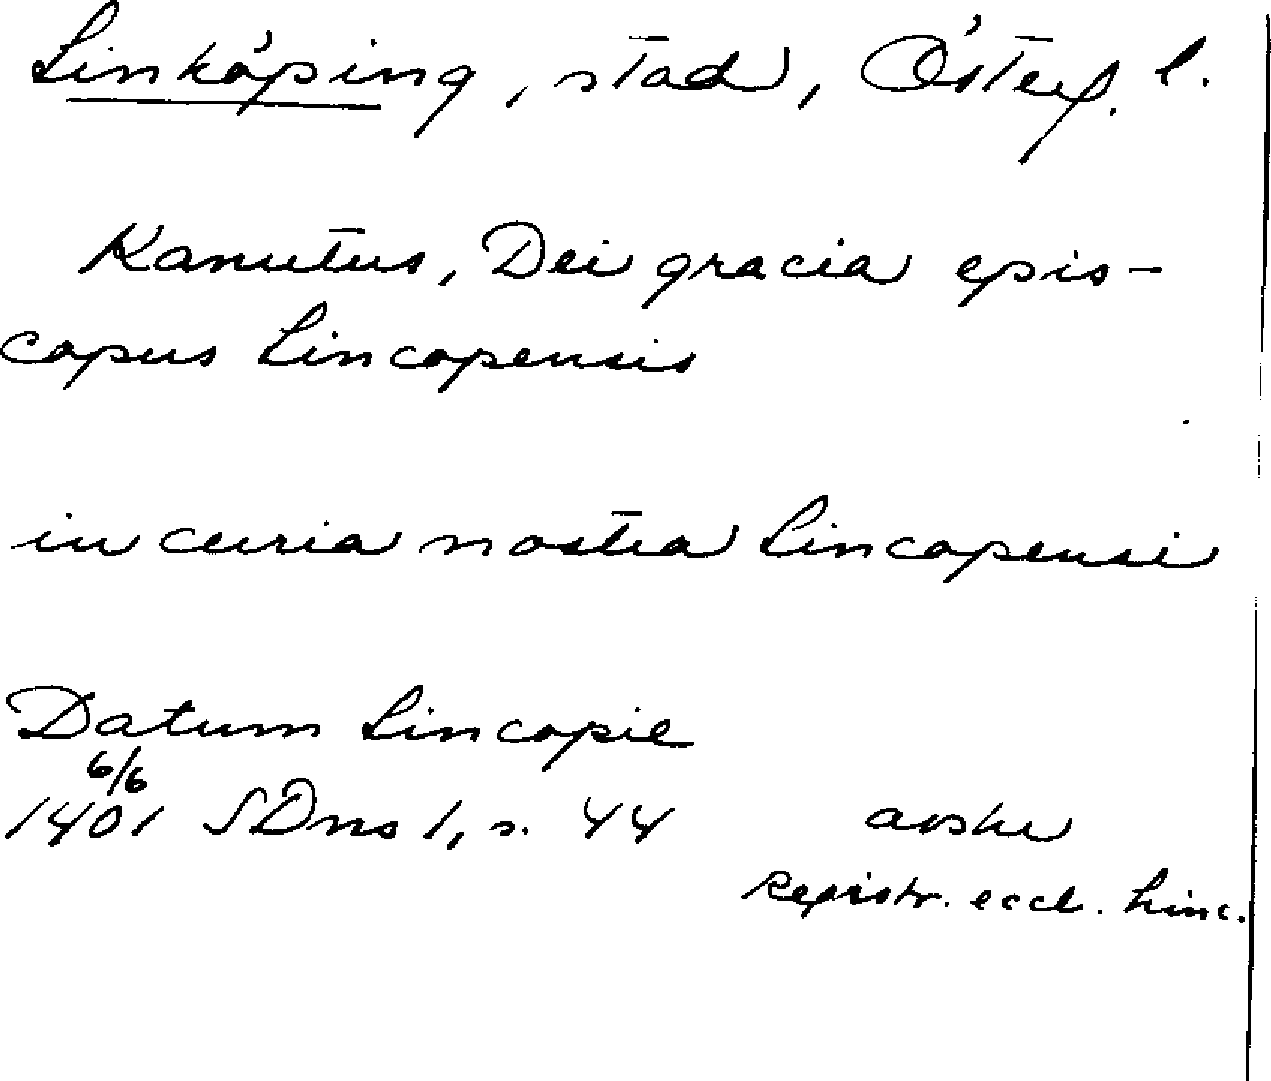 Linköping, stad, Österg. l.
Kanutus, Dei gracia epis-
copus Lincopensis
in curia nostra Lincopensi
Datum Lincopie
6/6
1401 SDns 1, s. 44 avskr
Registr. eccl. Linc.